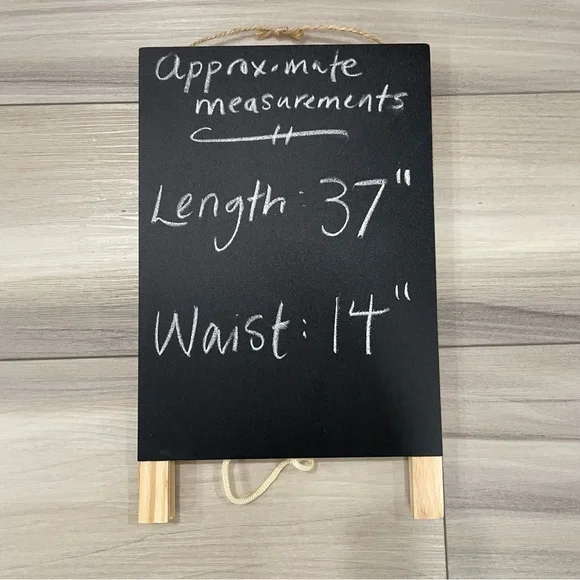 Approximate
measurements
Length: 37"
Waist: 14"